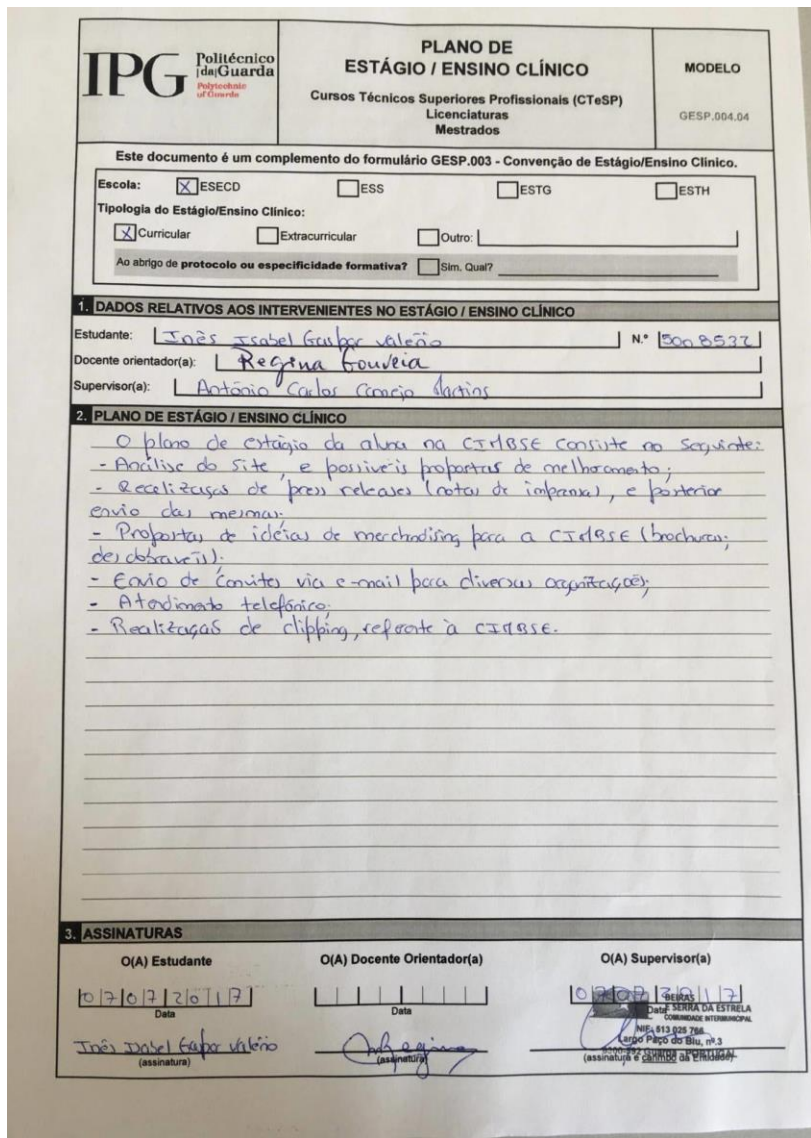 IPG
Politécnico
|da|Guarda
Polytechnic
of Guarda
PLANO DE
ESTÁGIO / ENSINO CLÍNICO
Cursos Técnicos Superiores Profissionais (CTeSP)
Licenciaturas
Mestrados
MODELO
GESP.004.04
Este documento é um complemento do formulário GESP.003 - Convenção de Estágio/Ensino Clínico.
Escola: X ESECD ESS ESTG ESTH
Tipologia do Estágio/Ensino Clínico:
X Curricular Extracurricular Outro:
Ao abrigo de protocolo ou especificidade formativa? Sim. Qual?
1. DADOS RELATIVOS AOS INTERVENIENTES NO ESTÁGIO / ENSINO CLÍNICO
Estudante: Inês Isabel Gaspar Valério N.º 5008537
Docente orientador(a): Regina Gouveia
Supervisor(a): António Carlos Martins
2. PLANO DE ESTÁGIO / ENSINO CLÍNICO
O plano de estágio da aluna na CIMBSE consiste no seguinte:
- Análise do site, e possiveis propostas de melhoramento;
- Recelizaças de press releases (notas de imprensa), e posterior
envio das mesmas.
- Propostas de idéias de merchodising para a CIMBSE (brochuras;
desdobraveis);
- Envio de convites via e-mail para diversas organizações;
- Atendimento telefónico;
- Realizaças de clipping, referente à CIMBSE.
3. ASSINATURAS
O(A) Estudante O(A) Docente Orientador(a) O(A) Supervisor(a)
07072017 07072017
Data Data Data
BEIRAS
E SERRA DA ESTRELA
COMUNIDADE INTERMUNICIPAL
NIF: 513 025 766
Largo Paço do Biu, nº.3
Guarda - PORTUGAL
Inês Isabel Gaspar Valério Regina
(assinatura) (assinatura) (assinatura e carimbo da Entidade)